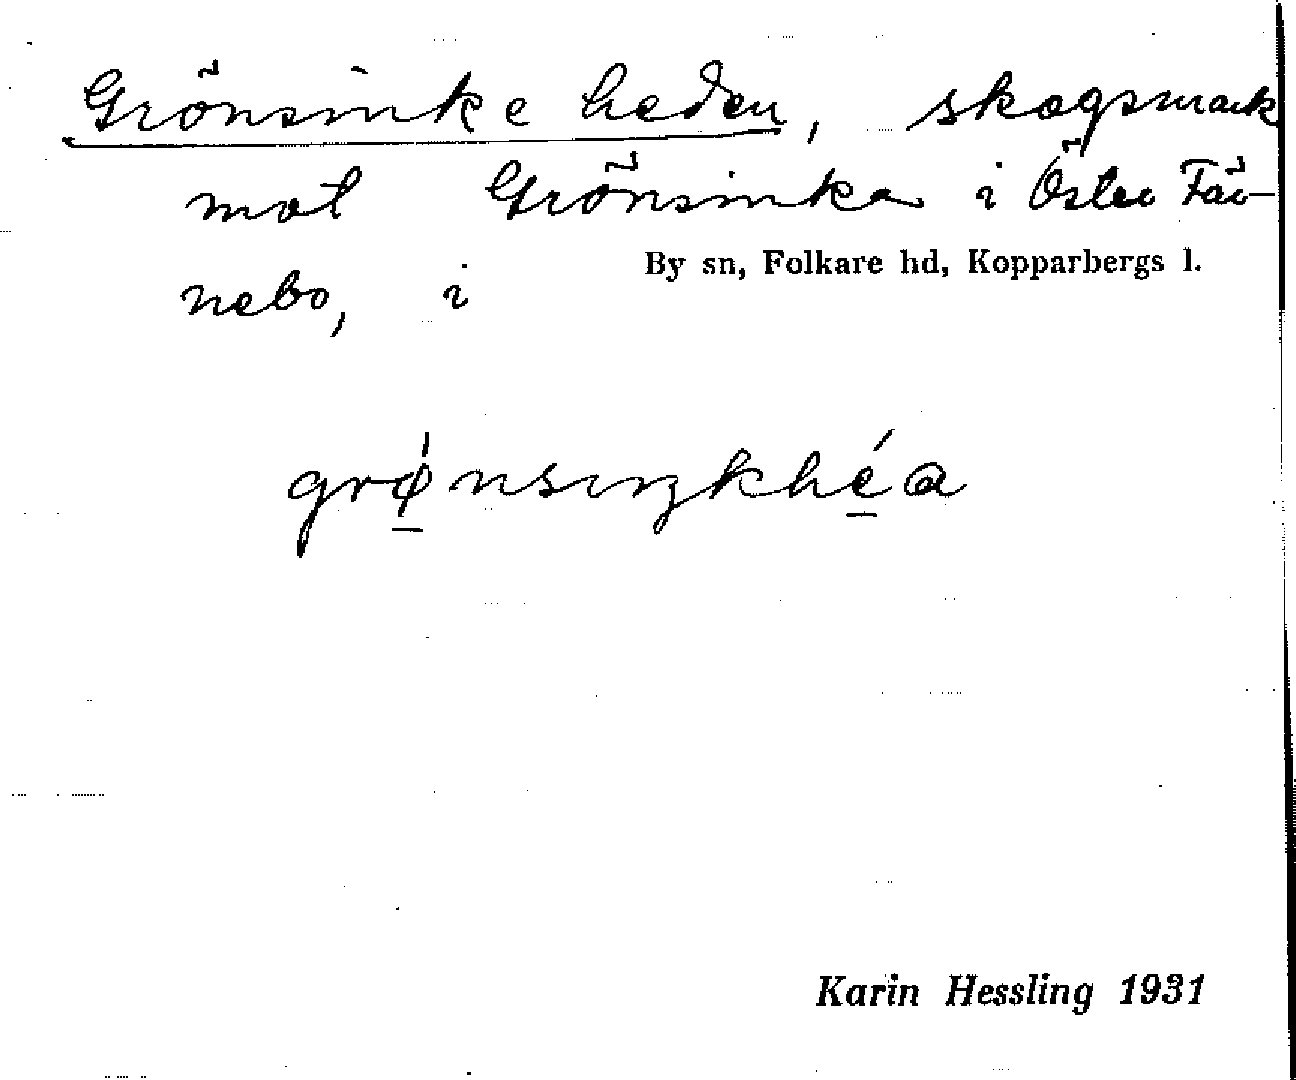 Grönsinke heden, skogsmark
mot Grönsinka i Öster Fär-
nebo, i
By sn, Folkare hd, Kopparbergs l.
grǿ̲nsiŋkhé̲a
Karin Hessling 1931